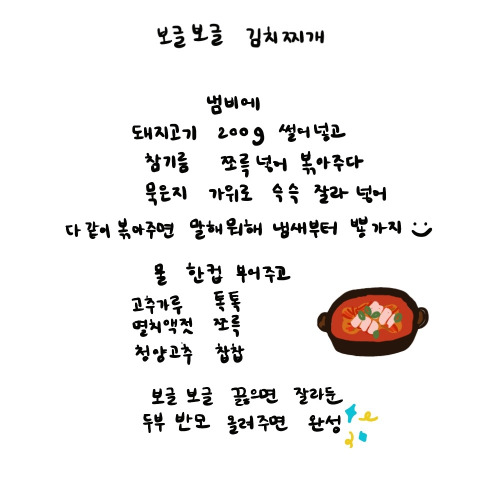 보글보글 김치찌개
냄비에
돼지고기 200g 썰어넣고
참기름 쪼륵 넣어 볶아주다
묵은지 가위로 슥슥 잘라 넣어
다 같이 볶아주면 말해뭐해 냄새부터 뿅가지
물 한컵 부어주고
고추가루 톡톡
멸치액젓 쪼륵
청양고추 찹찹
보글 보글 끓으면 잘라둔
두부 반모 올려주면 완성